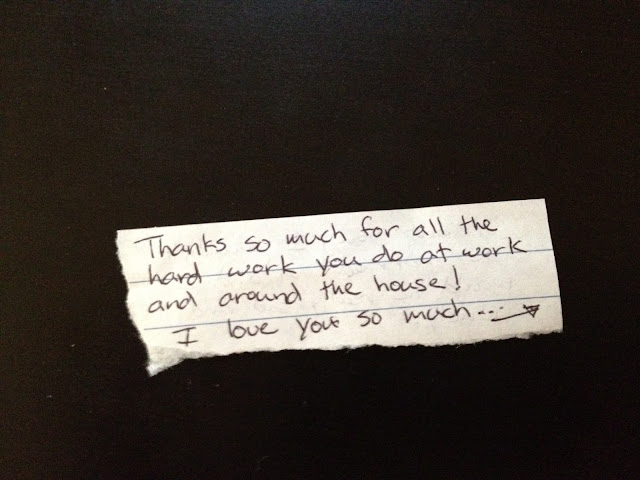 Thanks so much for all the
hard work you do at work
and around the house!
I love you so much...→